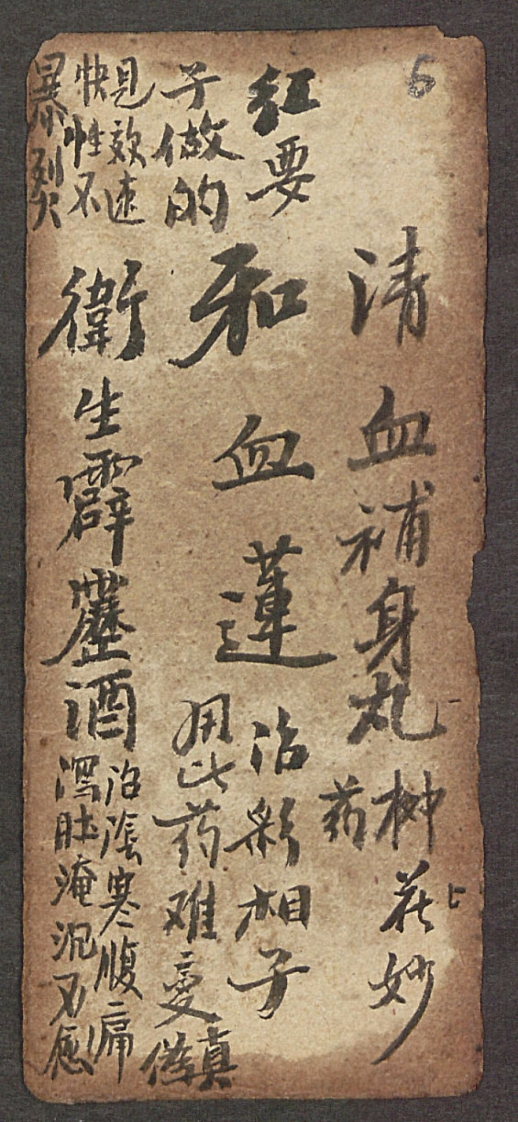 5
清血補身丸
柳花妙
药
红要
和血蓮
治彩相子
子做的
用此药难变
真
見效速
快性不
暴烈
衛生霹靂酒
治陰寒腹痛
瀉肚淹沉